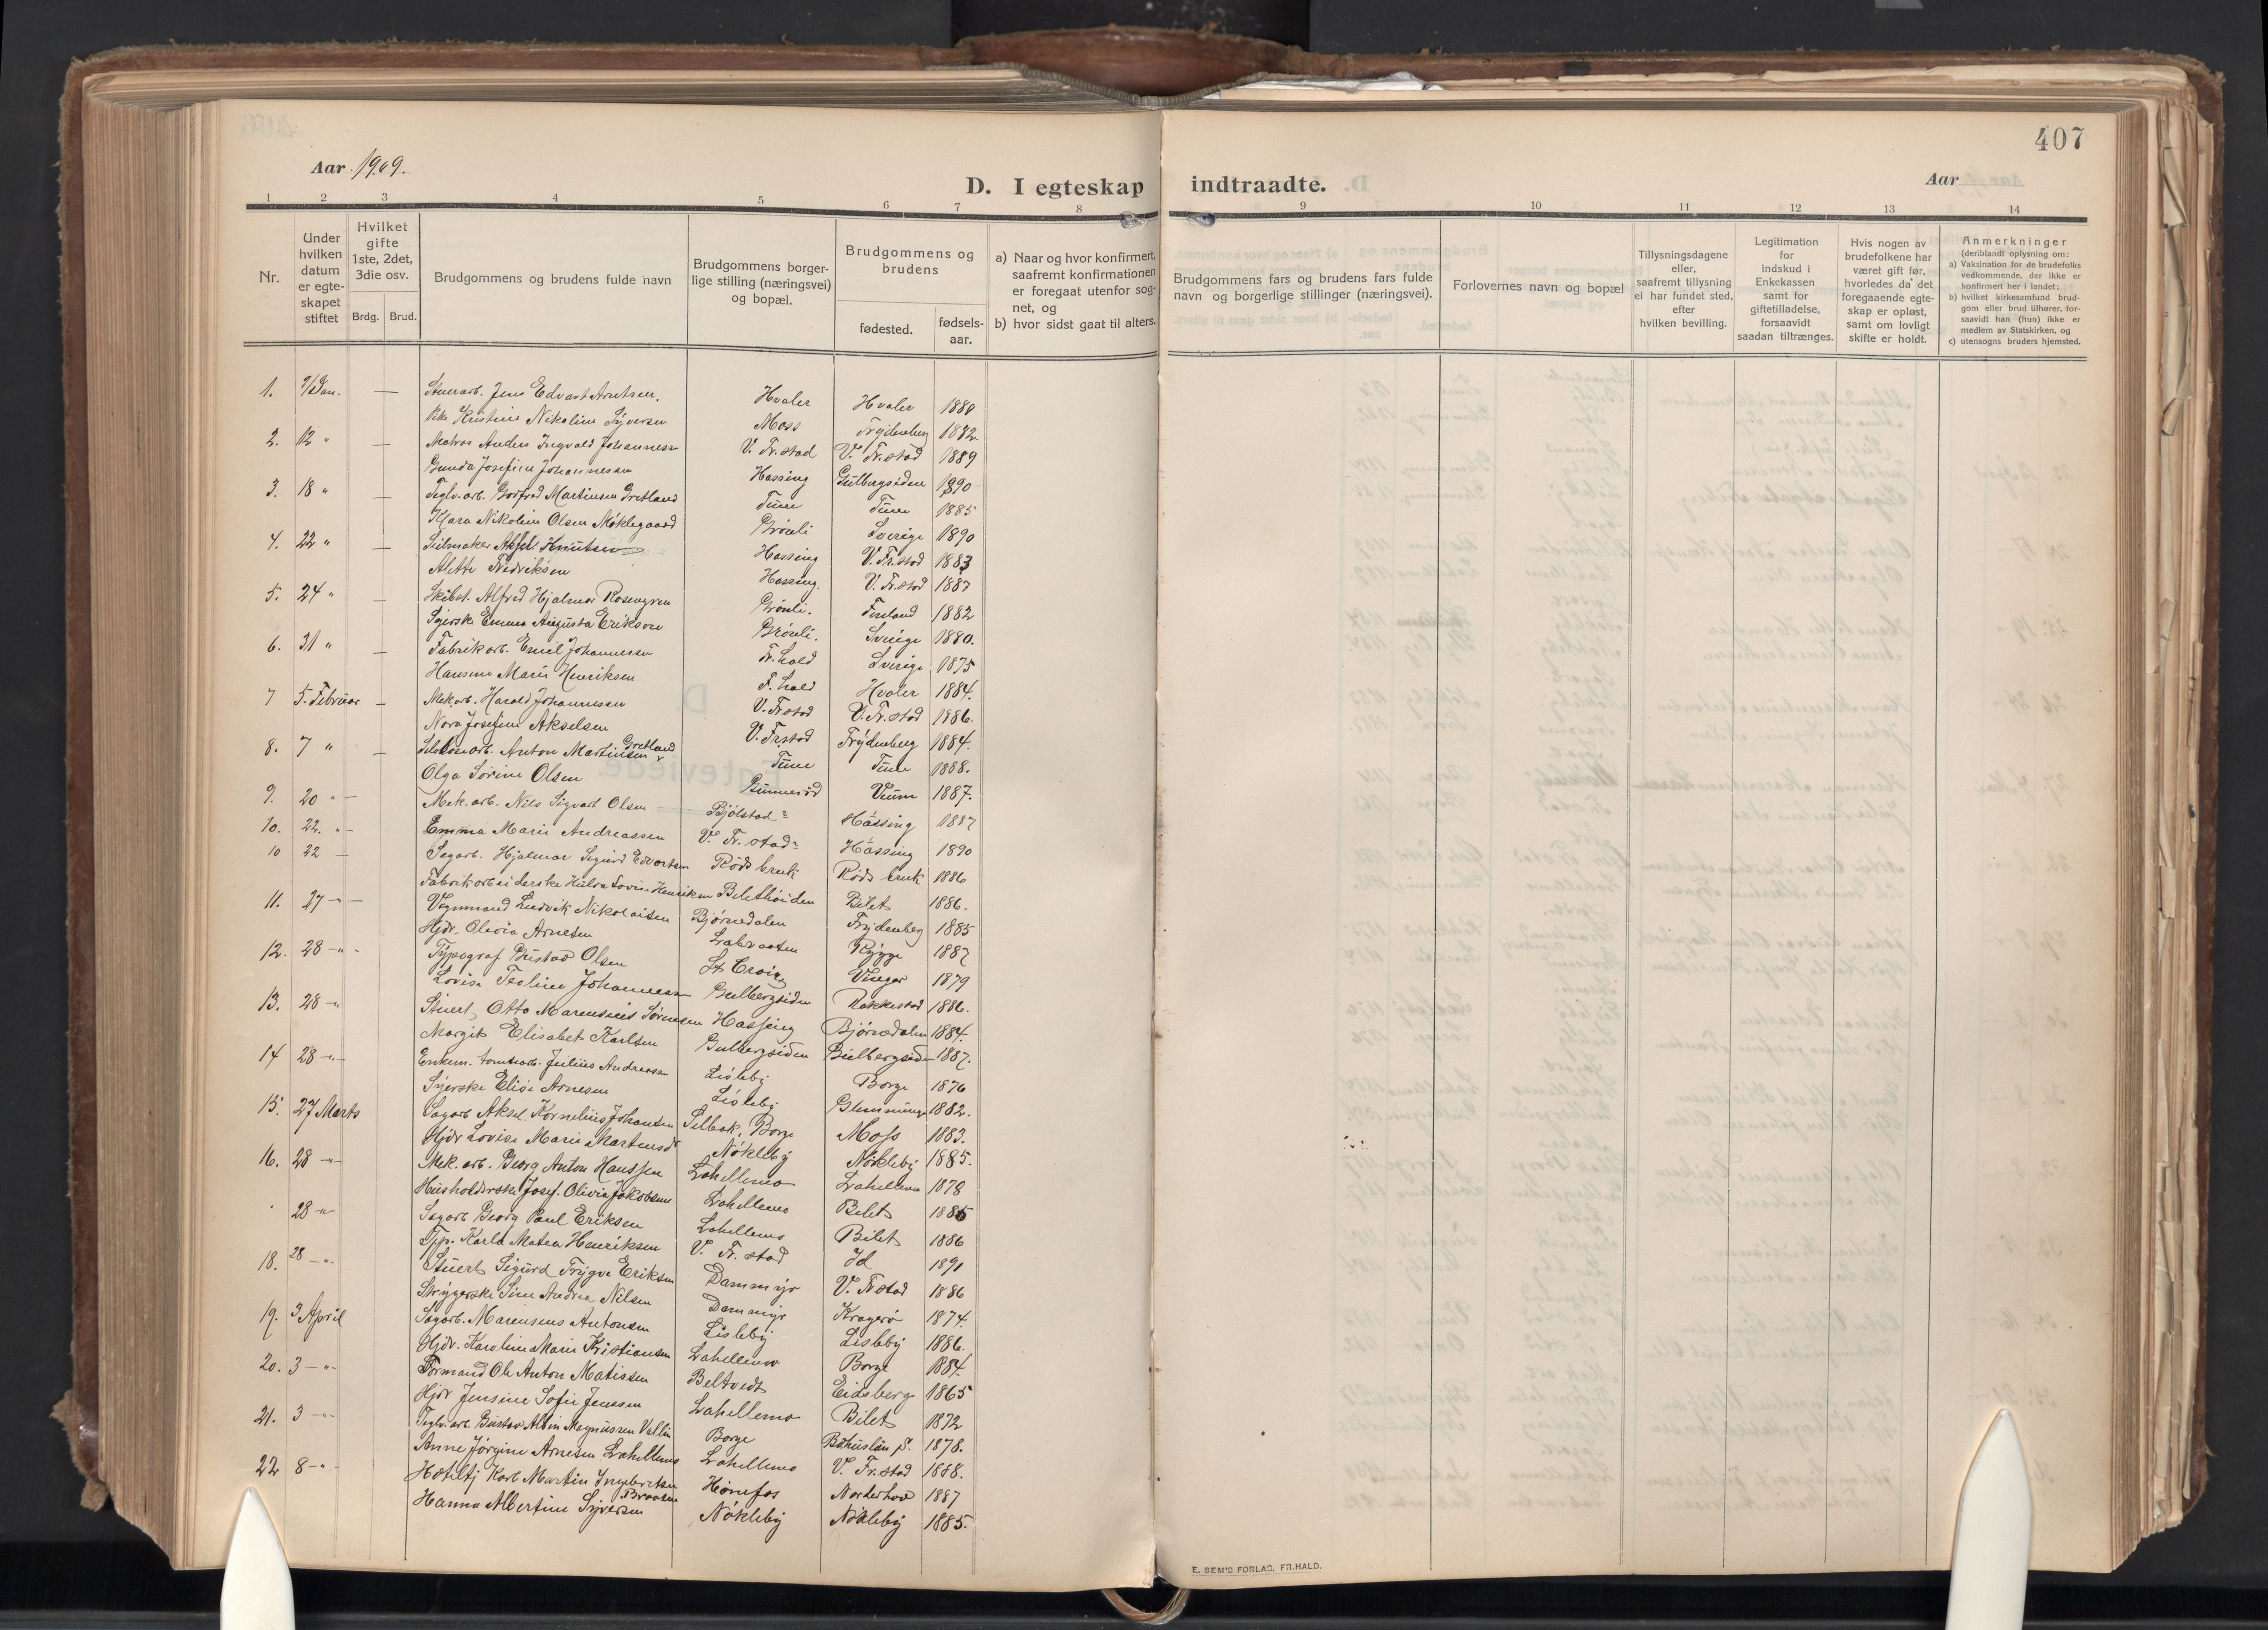 407
Aar 1909.
D. I egteskap indtraadte.
Aar
1 2 3 4 5 6 7 8 9 10 11 12 13 14
Nr.
Under hvilken datum er egteskapet stiftet
Hvilket gifte 1ste, 2det, 3die osv.
Brdg. Brud.
Brudgommens og brudens fulde navn
Brudgommens borgerlige stilling (næringsvei) og bopæl.
Brudgommens og brudens
fødested.
fødselsaar.
a) Naar og hvor konfirmert, saafremt konfirmationen er foregaat utenfor sognet, og
b) hvor sidst gaat til alters.
Brudgommens fars og brudens fars fulde navn og borgerlige stillinger (næringsvei).
Forlovernes navn og bopæl
Tillysningsdagene eller, saafremt tillysning ei har fundet sted, efter hvilken bevilling.
Legitimation for indskud i Enkekassen samt for giftetilladelse, forsaavidt saadan tiltrænges.
Hvis nogen av brudefolkene har været gift før, hvorledes da det foregaaende egteskap er opløst, samt om lovligt skifte er holdt.
Anmerkninger (deriblandt oplysning om:
a) Vaksination for de brudefolks vedkommende, der ikke er konfirmert her i landet;
b) hvilket kirkesamfund brudgom eller brud tilhører, forsaavidt han (hun) ikke er medlem av Statskirken, og
c) utensogns bruders hjemsted.
1. 9/Jan. — Stenarb. Jens Edvart Arntsen. Hvaler Hvaler 1880
Kristine Nikoline Syversen Moss Frydenberg 1882.
2. 12 " — Matros Anders Ingvald Johannesen V. Fr.stad V. Fr.stad 1889
Gunda Josefine Johannesen Hassing Gulbergsiden 1890
3. 18 " — Teglv.arb. Godfred Martinsen Gretland Tune Tune 1885
Klara Nikoline Olsen Møklegaard Grønli Sverige 1890
4. 22 " — Seilmaker Aksel Knutsen Hassing V. Fr.stad 1883
Alette Fredriksen Hassing V. Fr.stad 1887
5. 24 " — Skibst. Alfred Hjalmar Rosengren Grønli. Finland 1882
Syerske Emma Augusta Erikson Grønli. Sverige 1880.
6. 31 " — Fabrikarb. Emil Johannessen Fr.hald Sverige 1875
Hansine Marie Henriksen F.hald Hvaler 1884.
7 5. Februar — Mek.arb. Harald Johannessen V. Fr.stad V. Fr.stad 1886.
Nora Josefine Akselsen V. Fr.stad Frydenberg 1884.
8. 7 " — Anton Martinsen Gretland Tune Tune 1888.
Olga Sørine Olsen Gunnerød Veum 1887.
9. 20 " — Mek. arb. Nils Sigvart Olsen Bjølstad Hassing 1887
10. 22. " — Emma Marie Andreassen V. Fr.stad Hassing 1890
10 22 — Sagarb. Hjalmar Sigurd Edvartsen Røds bruk Røds bruk 1886
Fabrikarbeiderske Hulda Lovise Henriksen Bilethøiden Bilet 1886.
11. 27 -"- — Vognmand Ludvik Nikolaisen Bjørnedalen Frydenberg 1885
Hjdr. Olivia Arnesen Labraaten Rygge 1887
12. 28 -"- Typograf Gustav Olsen St Croix Vinger 1879
Lovise Teoline Johannessen Gulbergsiden Rakkestad 1886.
13. 28 -"- Stuert Otto Marensius Sørensen Hassing Bjørnedalen 1884.
Margit Elisabet Karlsen Gulbergsiden Gulbergsiden 1887.
14 28 -"- Enkem. tomtearb. Julius Andreassen Lisleby Borge 1876
Syerske Elise Arnesen Lisleby Glemminge 1882.
15. 27 Marts Sagarb Aksel Kornelius Johansen Selbak, Borge Moss 1883.
Hjdr Lovise Marie Martinsdt Nøkleby Nøkleby 1885.
16. 28 -"- Mek. arb. Georg Anton Hanssen Lahellemo Lahellemo 1878
Husholderske Josef. Olivia Jakobsen Lahellemo Bilet 1885
28 -"- Sagarb Georg Paul Eriksen Lahellemo Bilet 1886
Karla Matea Henriksen V. Fr.stad Id 1891
18. 28 -"- Stuert Sigurd Trygve Eriksen Dammyr V. Fr.stad 1886
Strygerske Sine Andrea Nilsen Dammyr Kragerø 1874.
19. 3 April Sagarb. Marensius Antonsen Lisleby Lisleby 1886.
Hjdr. Karoline Marie Kristiansen Lahellemo Borge 1884.
20. 3 -"- Formand Ole Anton Matissen Beltvedt Eidsberg 1865
Hjdr Jensine Sofie Jenssen Lahellemo Bilet 1872
21. 3 -"- Teglv.arb. Gustav Albin Magnussen Vallin Borge Båhuslän S. 1878.
Anne Jørgine Arnesen Lahellemo Lahellemo V. Fr.stad 1888.
22 8 -"- Karl Martin Ingebretsen Braaten Hønefos Norderhov 1887
Hanna Albertine Syversen Nøkleby Nøkleby 1885.
E. SEM'S FORLAG, FR.HALD.